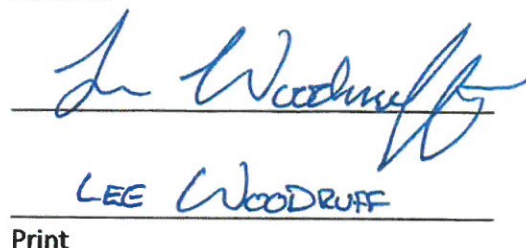 Lee Woodruff
LEE WOODRUFF
Print